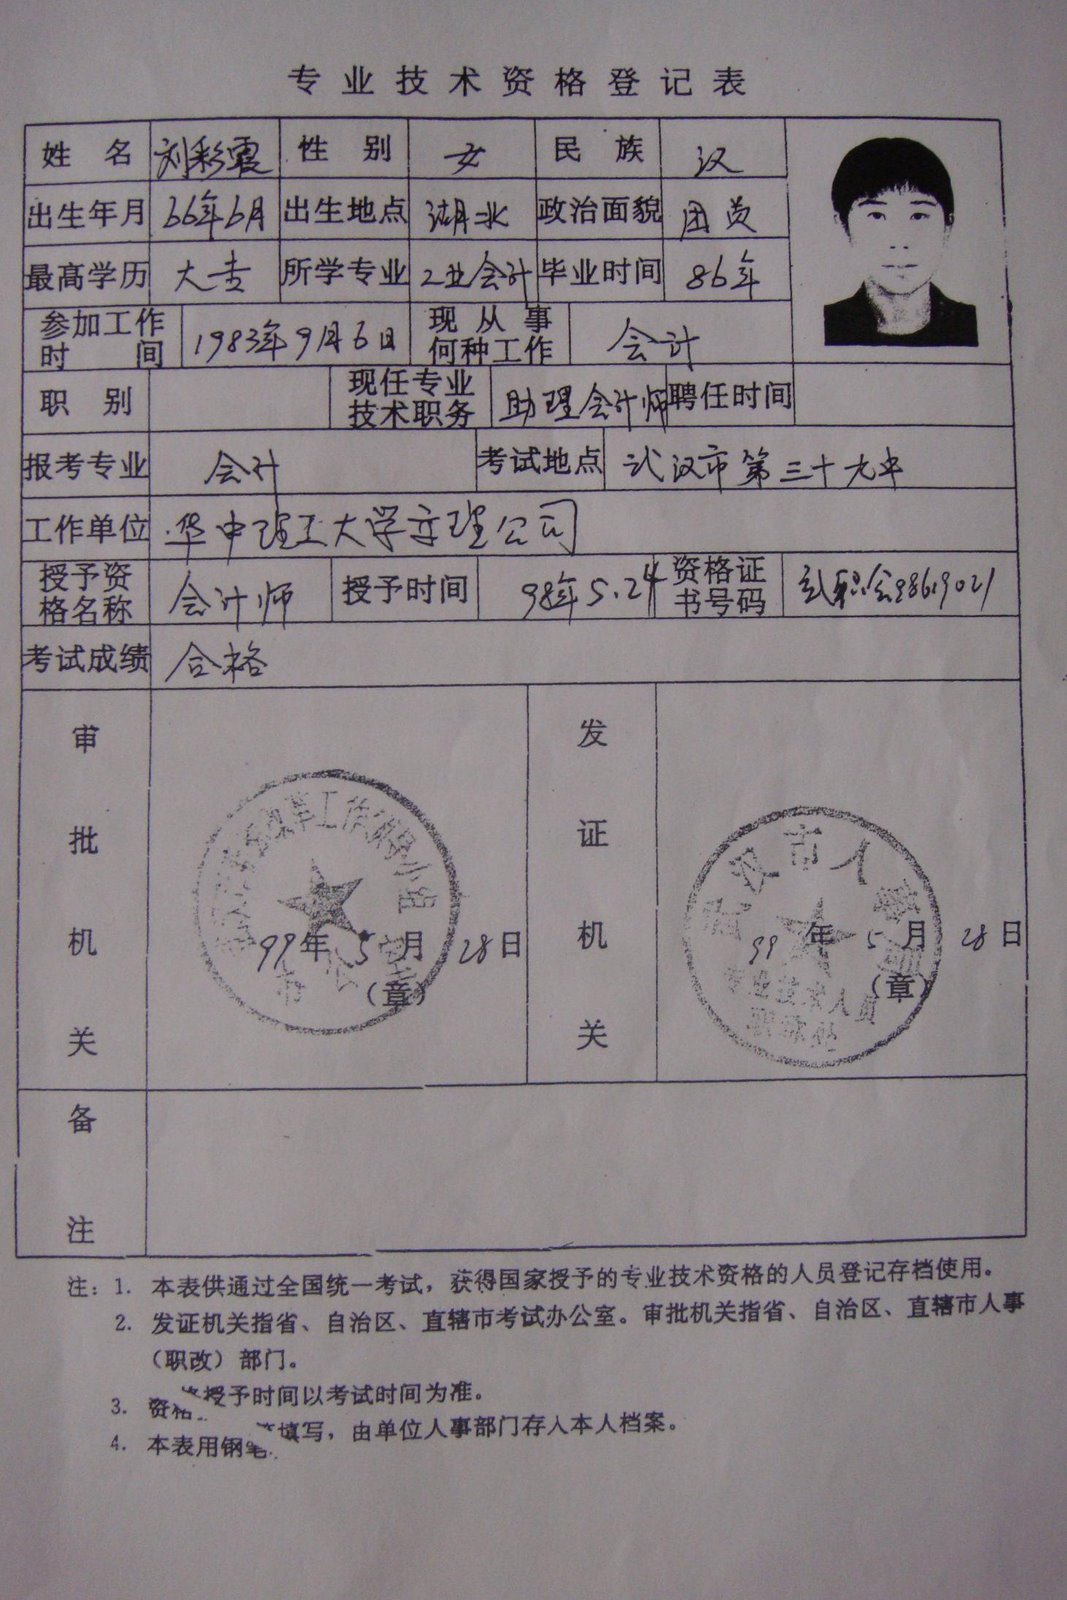 专业技术资格登记表
姓名 刘彩霞 性别 女 民族 汉
出生年月 66年6月 出生地点 湖北 政治面貌 团员
最高学历 大专 所学专业 工业会计 毕业时间 86年
参加工作时间 1983年9月6日 现从事何种工作 会计
职别 现任专业技术职务 助理会计师 聘任时间
报考专业 会计 考试地点 武汉市第三十九中
工作单位 华中理工大学 公司
授予资格名称 会计师 授予时间 98年5.24 资格证书号码 武职会98619021
考试成绩 合格
审批机关 99年5月28日
(章)
发证机关 99年5月28日
(章)
武汉市人事局
专业技术人员
职称处
备注
注：1. 本表供通过全国统一考试，获得国家授予的专业技术资格的人员登记存档使用。
2. 发证机关指省、自治区、直辖市考试办公室。审批机关指省、自治区、直辖市人事
（职改）部门。
3. 资格授予时间以考试时间为准。
4. 本表用钢笔填写，由单位人事部门存入本人档案。